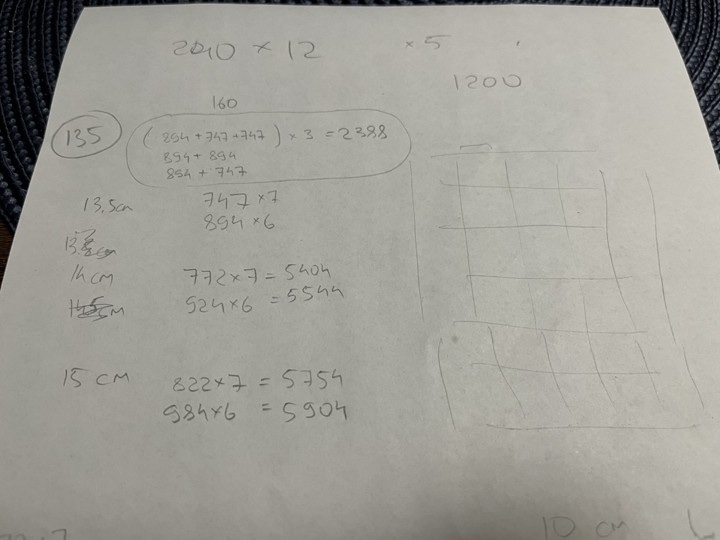 2040 × 12 × 5
1200
160
135
(894 + 747 + 747) × 3 = 2388
894 + 894
894 + 747
13,5cm 747 × 7
894 × 6
14 cm 772 × 7 = 5404
924 × 6 = 5544
15 cm 822 × 7 = 5754
984 × 6 = 5904
10 cm